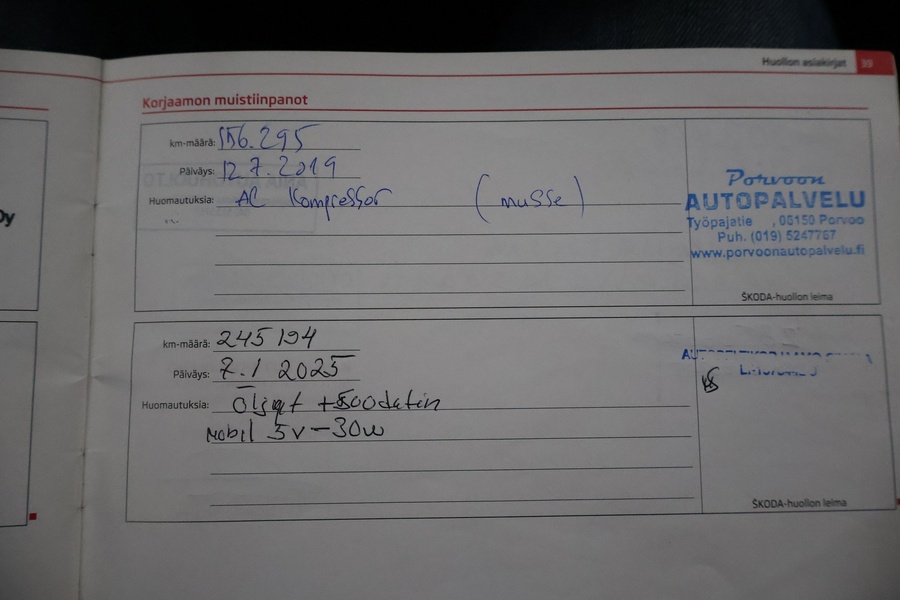 Huollon asiakirjat 39
Korjaamon muistiinpanot
km-määrä: 156.295
Päiväys: 12.7.2019
Huomautuksia: AC kompressor (musse)
Porvoon
AUTOPALVELU
Työpajatie , 06150 Porvoo
Puh. (019) 5247767
www.porvoonautopalvelu.fi
ŠKODA-huollon leima
km-määrä: 245 194
Päiväys: 7.1 2025
Huomautuksia: Öljyt + suodatin
Mobil 5v-30w
ŠKODA-huollon leima
Oy